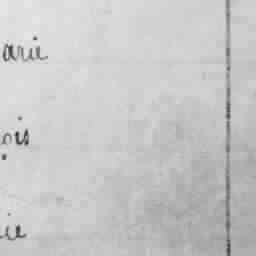 arie
ois
ie